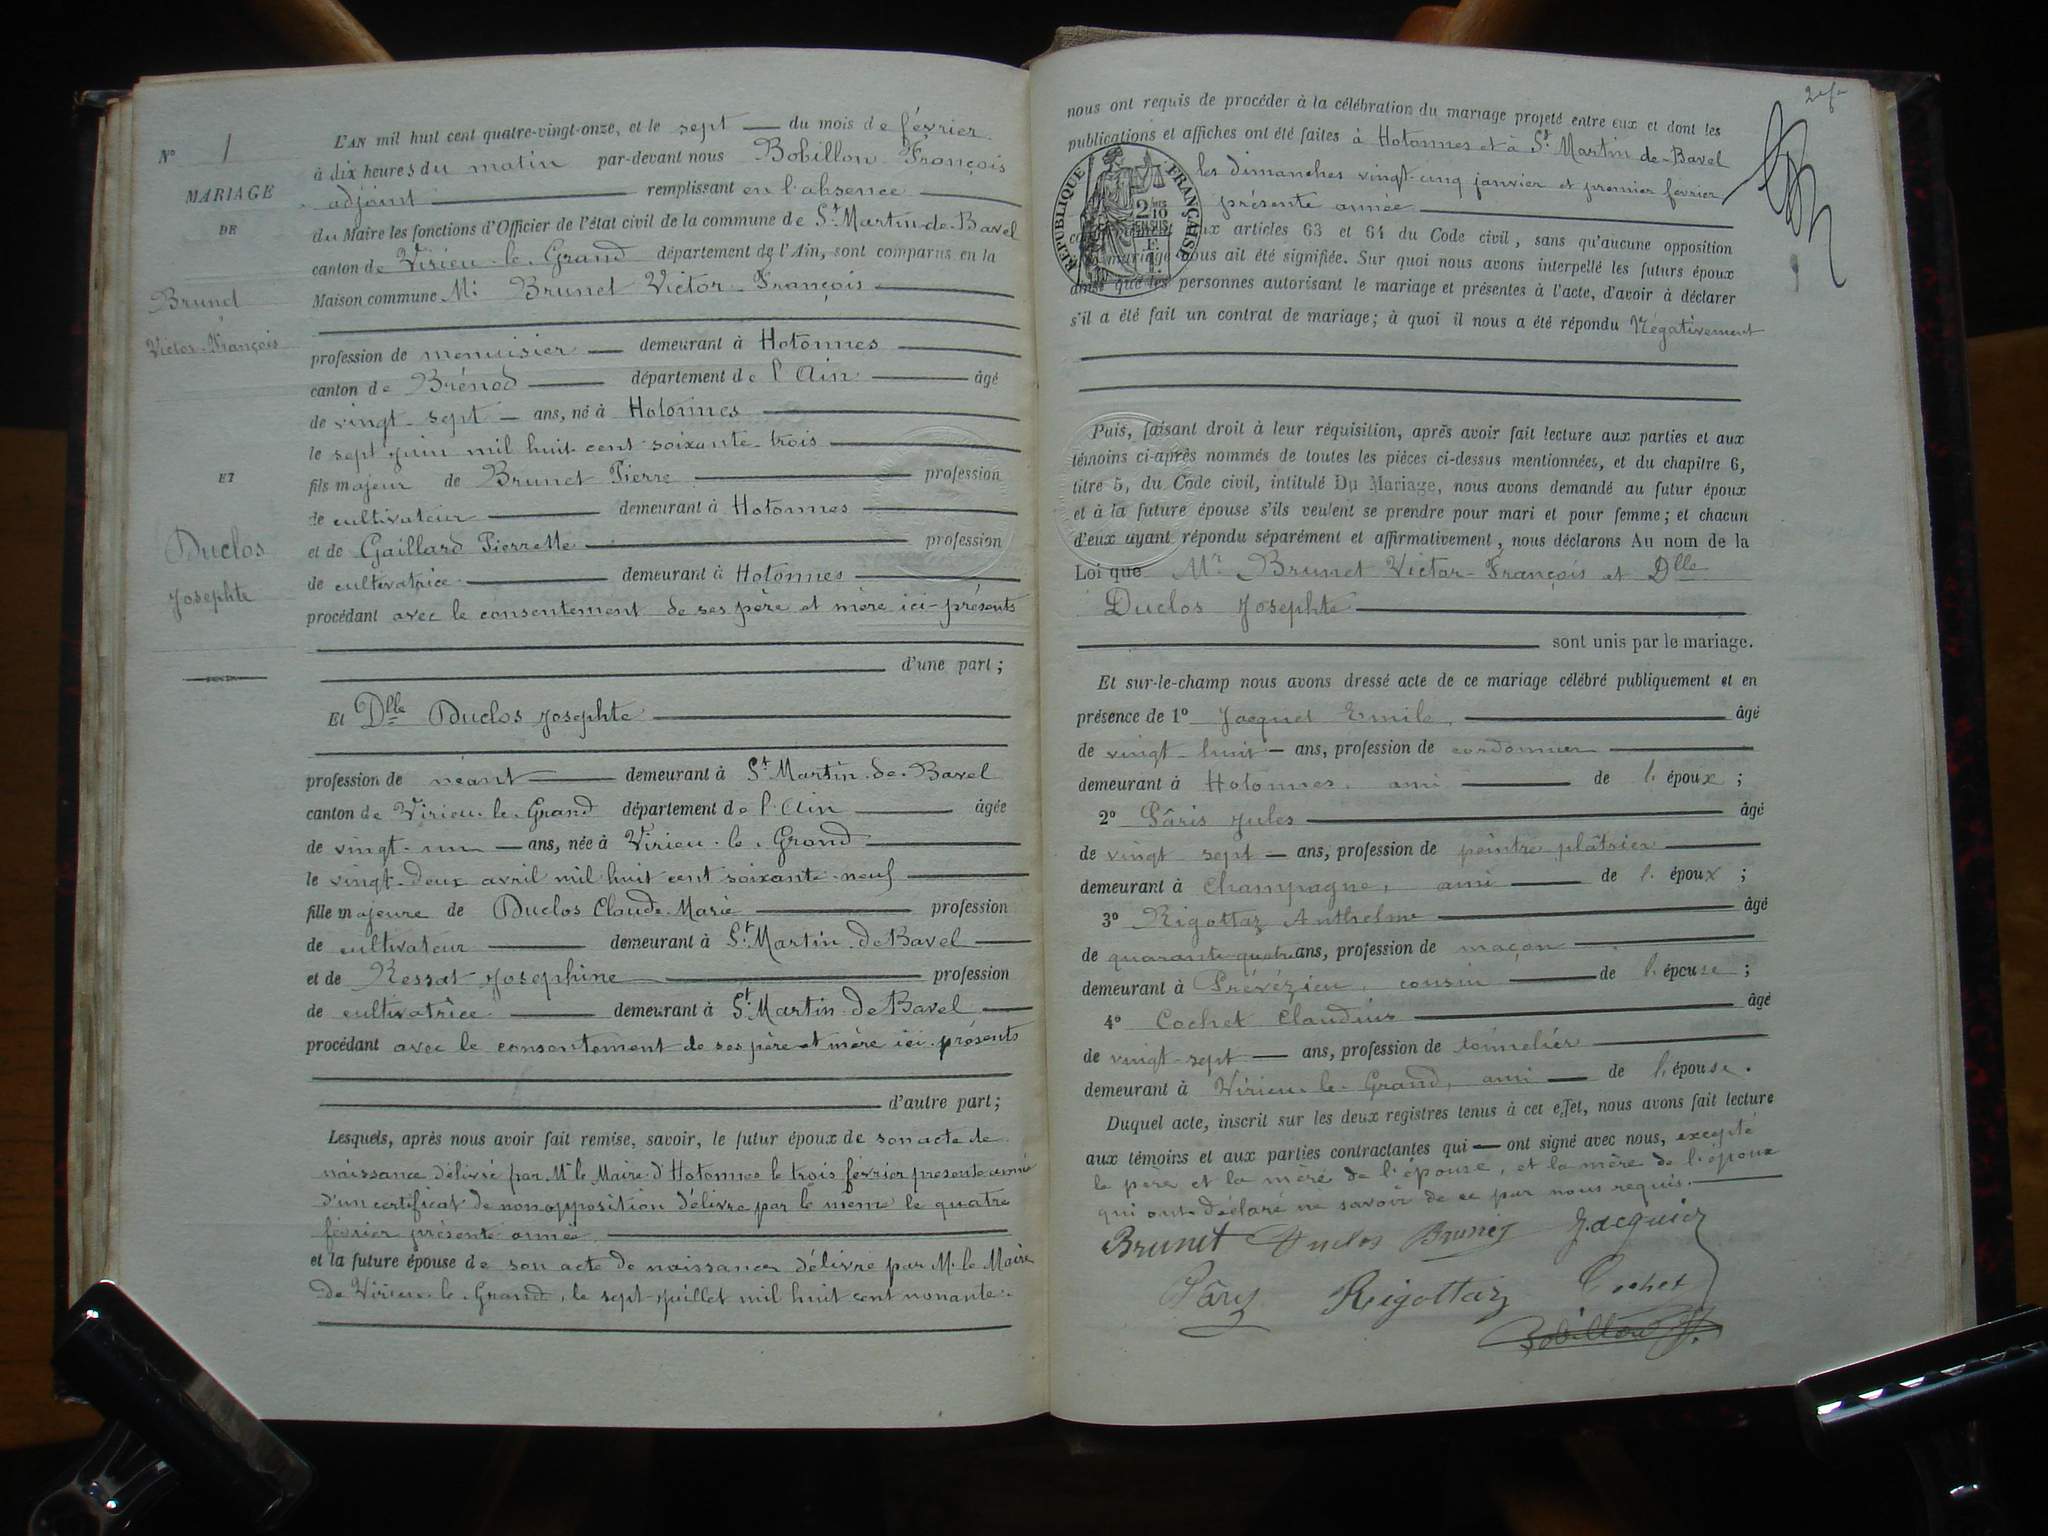 N° 1
MARIAGE
DE
Brunet
Victor-François
ET
Duclos
Josephte
L'AN mil huit cent quatre-vingt-onze, et le sept du mois de février
à dix heures du matin par-devant nous Bobillon François
adjoint remplissant en l'absence
du Maire les fonctions d'Officier de l'état civil de la commune de St Martin-de-Bavel
canton de Virieu-le-Grand département de l'Ain, sont comparus en la
Maison commune Mr Brunet Victor-François
profession de menuisier demeurant à Hotonnes
canton de Brénod département de l'Ain âgé
de vingt-sept ans, né à Hotonnes
le sept juin mil huit cent soixante-trois
fils majeur de Brunet Pierre profession
de cultivateur demeurant à Hotonnes
et de Gaillard Pierrette profession
de cultivatrice demeurant à Hotonnes
procédant avec le consentement de ses père et mère ici-présents
d'une part ;
Et Dlle Duclos Josephte
profession de néant demeurant à St Martin-de-Bavel
canton de Virieu-le-Grand département de l'Ain âgée
de vingt-un ans, née à Virieu-le-Grand
le vingt-deux avril mil huit cent soixante-neuf
fille majeure de Duclos Claude-Marie profession
de cultivateur demeurant à St Martin-de Bavel
et de Ressat Josephine profession
de cultivatrice demeurant à St Martin-de Bavel
procédant avec le consentement de ses père et mère ici-présents
d'autre part ;
Lesquels, après nous avoir fait remise, savoir, le futur époux de son acte de
naissance délivré par Mr le Maire d'Hotonnes le trois février présente année
d'un certificat de non opposition délivré par le même le quatre
février présente année
et la future épouse de son acte de naissance délivré par Mr le Maire
de Virieu-le-Grand, le sept juillet mil huit cent nonante.
nous ont requis de procéder à la célébration du mariage projeté entre eux et dont les
publications et affiches ont été faites à Hotonnes et à St Martin-de-Bavel
les dimanches vingt cinq janvier et premier février
présente année
RÉPUBLIQUE FRANÇAISE
2/10
EN SUS
aux articles 63 et 64 du Code civil, sans qu'aucune opposition
mariage nous ait été signifiée. Sur quoi nous avons interpellé les futurs époux
ainsi que les personnes autorisant le mariage et présentes à l'acte, d'avoir à déclarer
s'il a été fait un contrat de mariage ; à quoi il nous a été répondu Négativement
Puis, faisant droit à leur réquisition, après avoir fait lecture aux parties et aux
témoins ci-après nommés de toutes les pièces ci-dessus mentionnées, et du chapitre 6,
titre 5, du Code civil, intitulé Du Mariage, nous avons demandé au futur époux
et à la future épouse s'ils veulent se prendre pour mari et pour femme ; et chacun
d'eux ayant répondu séparément et affirmativement, nous déclarons Au nom de la
Loi que Mr Brunet Victor-François et Dlle
Duclos Josephte
sont unis par le mariage.
Et sur-le-champ nous avons dressé acte de ce mariage célébré publiquement et en
présence de 1° Jacquet Emile, âgé
de vingt-huit ans, profession de cordonnier
demeurant à Hotonnes, ami de l'époux ;
2° Pâris Jules âgé
de vingt sept ans, profession de peintre plâtrier
demeurant à Champagne, ami de l'époux ;
3° Rigottaz Anthelme âgé
de quarante-quatre ans, profession de maçon
demeurant à Prévézieu, cousin de l'épouse ;
4° Cochet Claudius âgé
de vingt-sept ans, profession de tonnelier
demeurant à Virieu-le-Grand, ami de l'épouse.
Duquel acte, inscrit sur les deux registres tenus à cet effet, nous avons fait lecture
aux témoins et aux parties contractantes qui ont signé avec nous, excepté
le père et la mère de l'épouse, et la mère de l'époux
qui ont déclaré ne savoir de ce par nous requis.
Brunet Duclos Brunet
Rigottaz Cochet
Bobillon